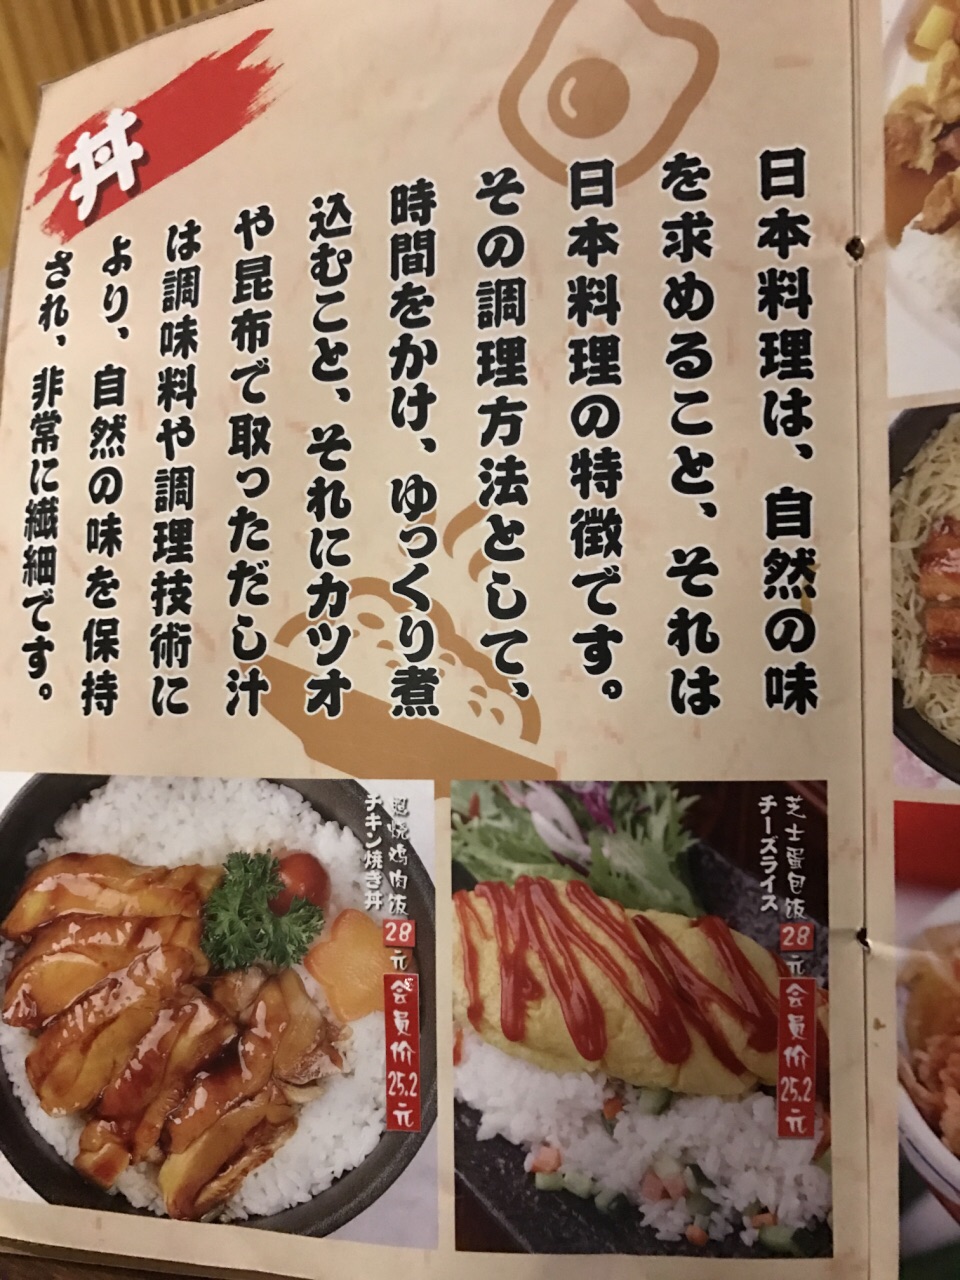 丼
日本料理は、自然の味
を求めること、それは
日本料理の特徴です。
その調理方法として、
時間をかけ、ゆっくり煮
込むこと、それにカツオ
や昆布で取っただし汁
は調味料や調理技術に
より、自然の味を保持
され、非常に繊細です。
烧鸡肉饭 28元 会员价 25.2元
チキン焼き丼
芝士蛋包饭 28元 会员价 25.2元
チーズライス